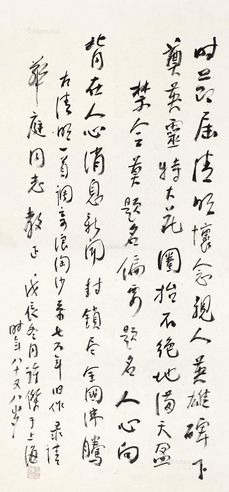 时节届清明怀念親人英雄碑下
奠英灵特大花圈抬不绝地满天盈
禁令莫题名偏要题名人心向
背在人心消息新闻封锁尽全国沸腾
右清明一首调寄浪淘沙七六年旧作录请
華庭同志教正戊辰冬月許傑于上海
时年八十又八岁